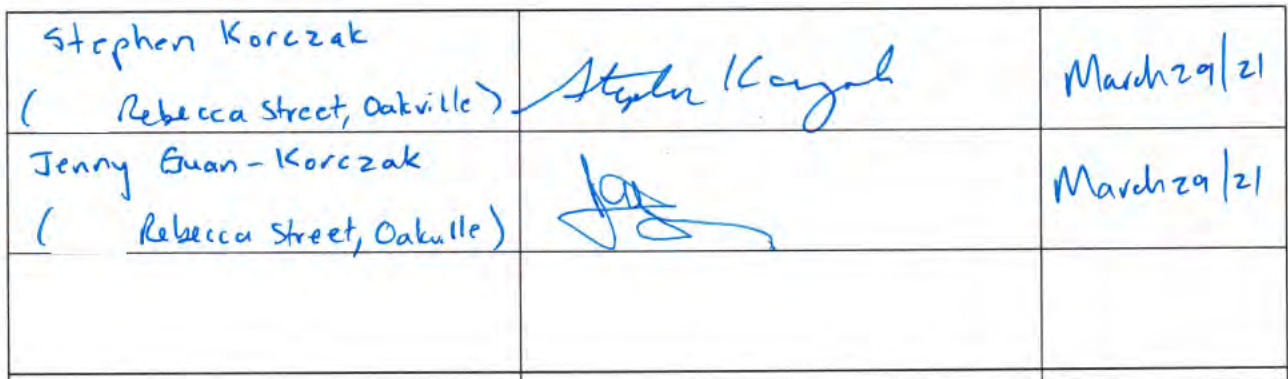 Stephen Korczak
( Rebecca Street, Oakville)
Stephen Korczak
March 29/21
Jenny Guan-Korczak
( Rebecca Street, Oakville)
March 29/21